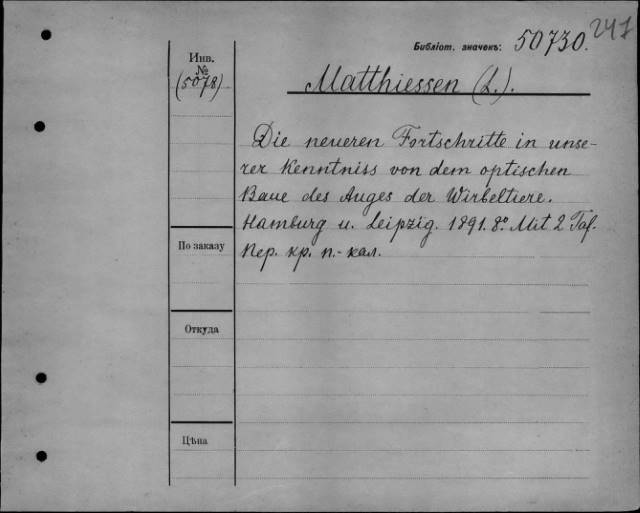 247
Библіот. значекъ: 50730.
Инв.
№
(5078)
Matthiessen (L.).
Die neueren Fortschritte in unse-
rer Kenntniss von dem optischen
Baue des Auges der Wirbeltiere.
Hamburg u. Leipzig. 1891. 8° Mit 2 Taf.
Пер. кр. п.-кал.
По заказу
Откуда
Цѣна